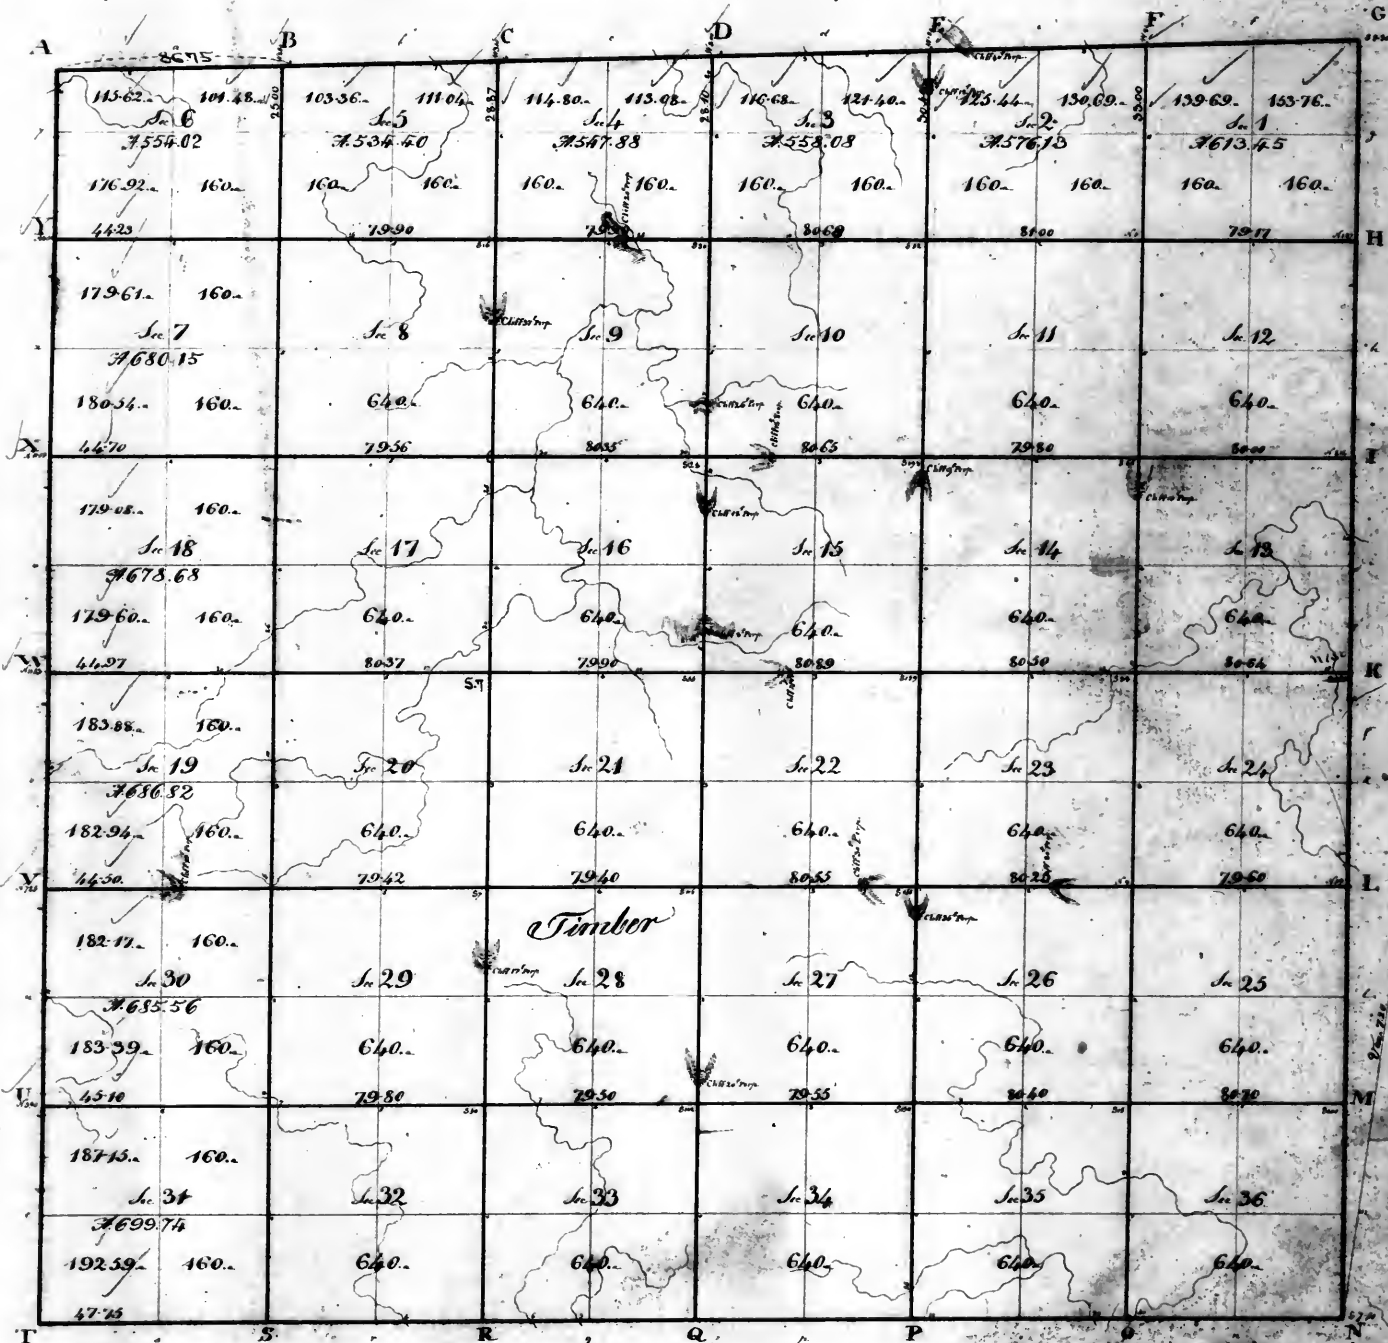 A B C D E F G
8675
115.62 101.48 25.00 103.36 111.04 28.87 114.80 113.08 28.40 116.68 121.40 125.44 130.69 33.00 139.69 153.76
Sec 6 Sec 5 Sec 4 Sec 3 Sec 2 Sec 1
A.554.02 A.534.40 A.547.88 A.558.08 A.576.13 A.613.45
176.92 160 160 160 160 160 160 160 160 160 160 160
Y 44.23 79.90 80.68 81.00 79.17 H
179.61 160
Sec 7 Sec 8 Sec 9 Sec 10 Sec 11 Sec 12
A.680.15
180.54 160 640 640 640 640 640
X 44.70 79.56 80.35 80.65 79.80 80.00 I
179.08 160
Sec 18 Sec 17 Sec 16 Sec 15 Sec 14 Sec 13
A.678.68
179.60 160 640 640 640 640 640
W 44.97 80.37 79.90 80.89 80.50 80.64 K
183.88 160
Sec 19 Sec 20 Sec 21 Sec 22 Sec 23 Sec 24
A.686.82
182.94 160 640 640 640 640 640
V 44.50 79.42 79.40 80.55 80.25 79.60 L
Timber
182.17 160
Sec 30 Sec 29 Sec 28 Sec 27 Sec 26 Sec 25
A.685.56
183.39 160 640 640 640 640 640
U 45.10 79.80 79.50 79.55 80.40 80.70 M
187.15 160
Sec 31 Sec 32 Sec 33 Sec 34 Sec 35 Sec 36
A.699.74
192.59 160 640 640 640 640 640
47.75
T S R Q P O N